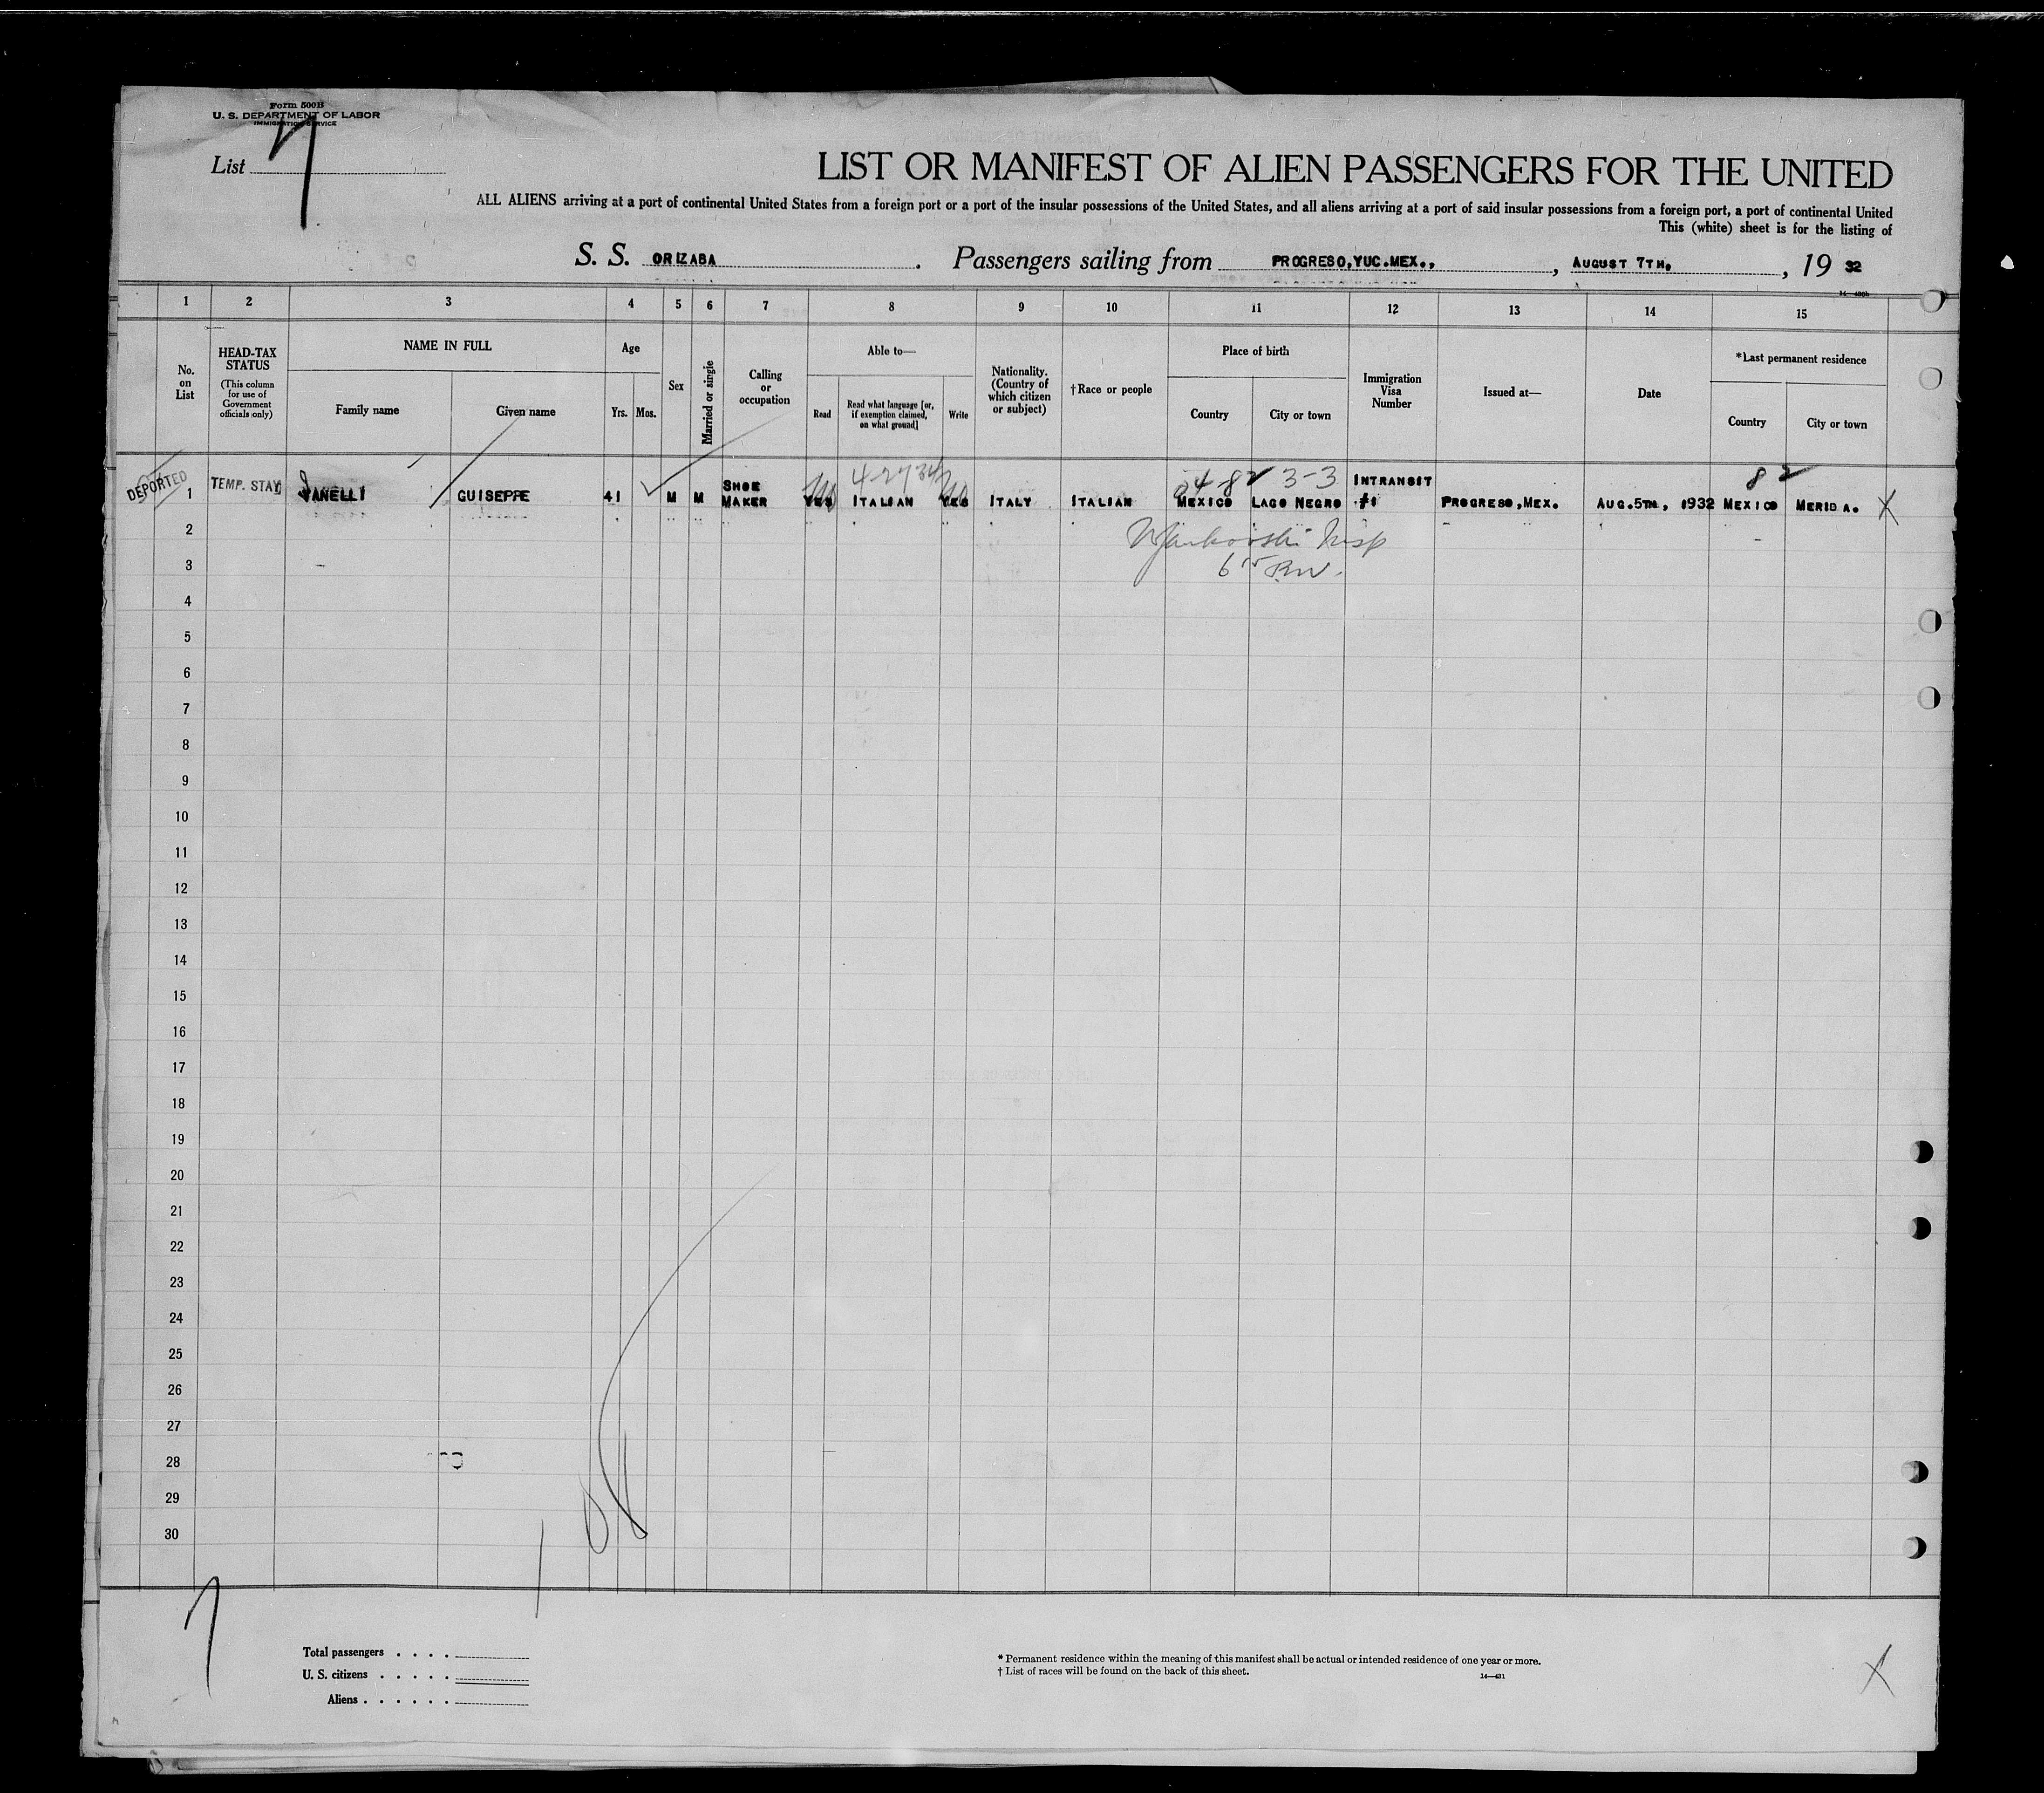 Form 500B
U. S. DEPARTMENT OF LABOR
IMMIGRATION SERVICE
List 7
LIST OR MANIFEST OF ALIEN PASSENGERS FOR THE UNITED
ALL ALIENS arriving at a port of continental United States from a foreign port or a port of the insular possessions of the United States, and all aliens arriving at a port of said insular possessions from a foreign port, a port of continental United
This (white) sheet is for the listing of
S. S. ORIZABA. Passengers sailing from PROGRESO,YUC.MEX., , AUGUST 7TH. , 19 32
1 2 3 4 5 6 7 8 9 10 11 12 13 14 15
No. on List
HEAD-TAX STATUS
(This column for use of Government officials only)
NAME IN FULL
Family name
Given name
Age
Yrs.
Mos.
Sex
Married or single
Calling or occupation
Able to—
Read
Read what language [or, if exemption claimed, on what ground]
Write
Nationality. (Country of which citizen or subject)
†Race or people
Place of birth
Country
City or town
Immigration Visa Number
Issued at—
Date
*Last permanent residence
Country
City or town
DEPORTED 1 TEMP. STAY GUISEPPE 41 M M SHOE MAKER YES ITALIAN YES ITALY ITALIAN MEXICO LAGO NEGRO INTRANSIT #1 PROGRESO,MEX. AUG.5TH, 1932 MEXICO MERIDA. X
3-3
82
2
3
4
5
6
7
8
9
10
11
12
13
14
15
16
17
18
19
20
21
22
23
24
25
26
27
28
29
30
7
Total passengers
U. S. citizens
Aliens
* Permanent residence within the meaning of this manifest shall be actual or intended residence of one year or more.
† List of races will be found on the back of this sheet.
14—431
X